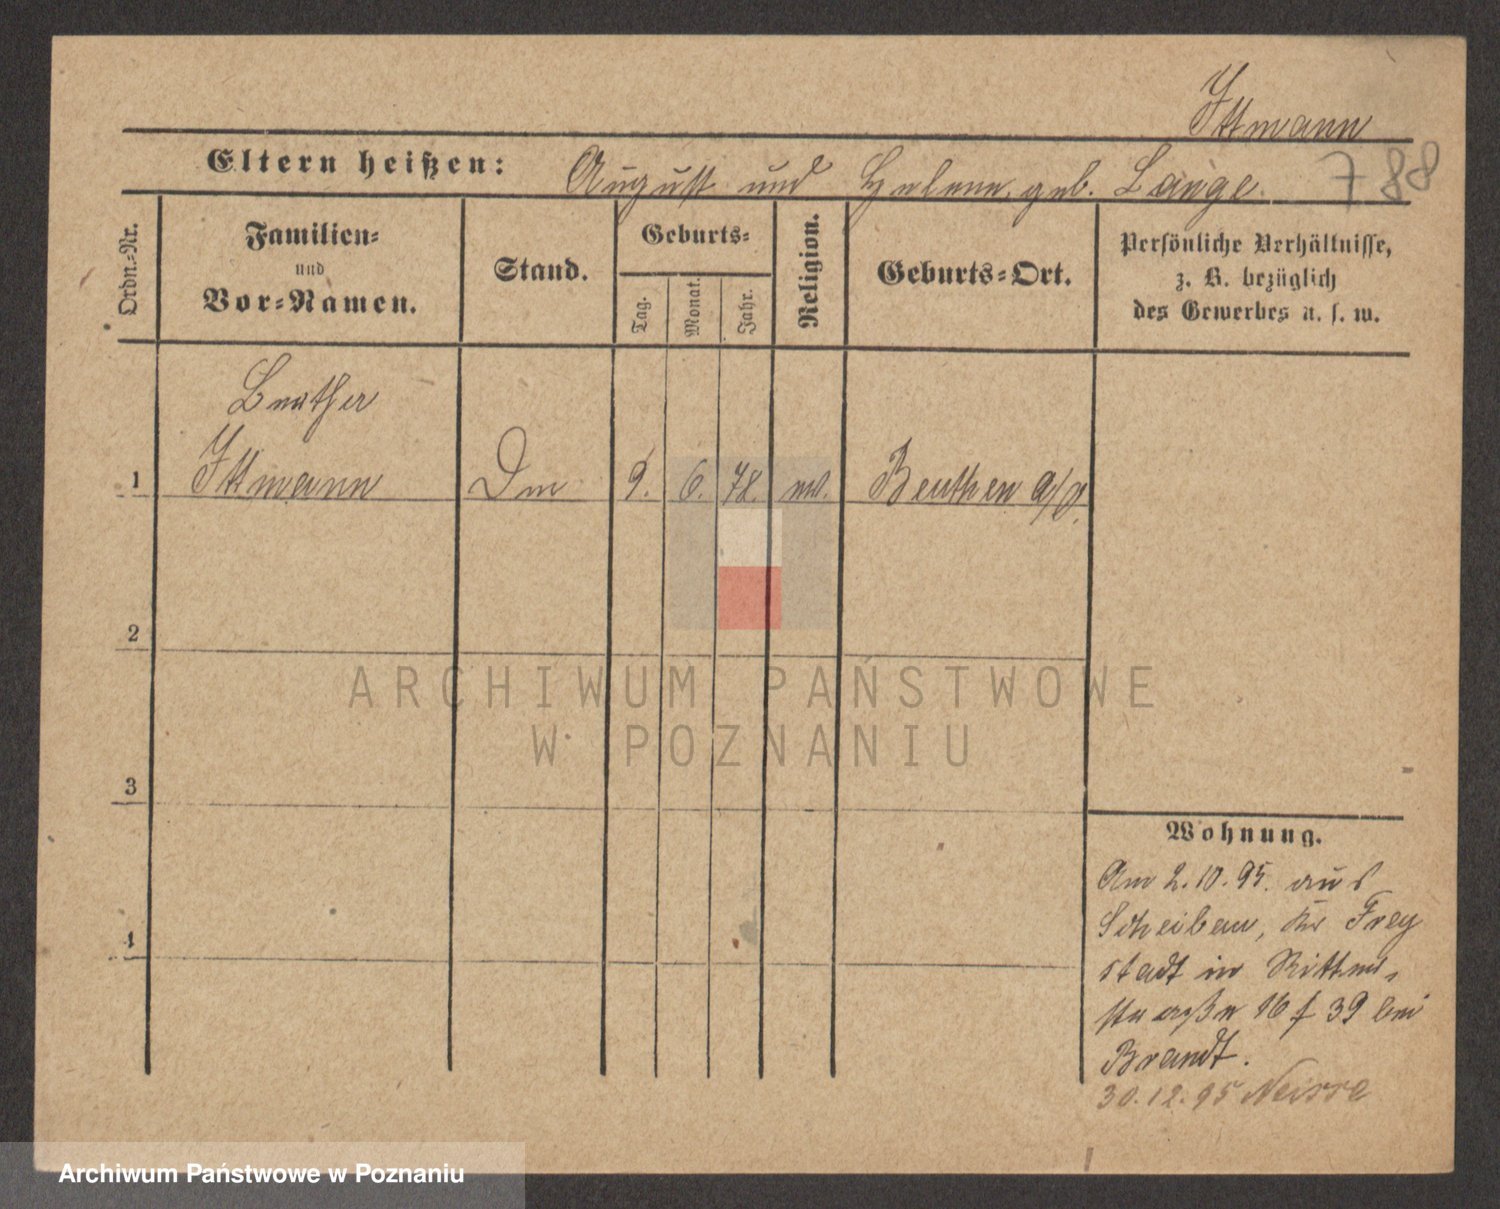 Ittmann
Eltern heißen: August und Helene, geb. Lange.
788
Ordn.-Nr.
Familien-
und
Vor-Namen.
Stand.
Geburts-
Tag.
Monat.
Jahr.
Religion.
Geburts-Ort.
Persönliche Verhältnisse,
z. B. bezüglich
des Gewerbes u. s. w.
1
Ittmann
9. 6. 78. ev. Beuthen a/O.
2
3
4
Wohnung.
Am 2.10.95. aus
Scheibau, Kr Frey
stadt in Ritter-
straße 16 f 39 bei
Brandt.
30.12.95 Neisse
ARCHIWUM PAŃSTWOWE
W POZNANIU
Archiwum Państwowe w Poznaniu